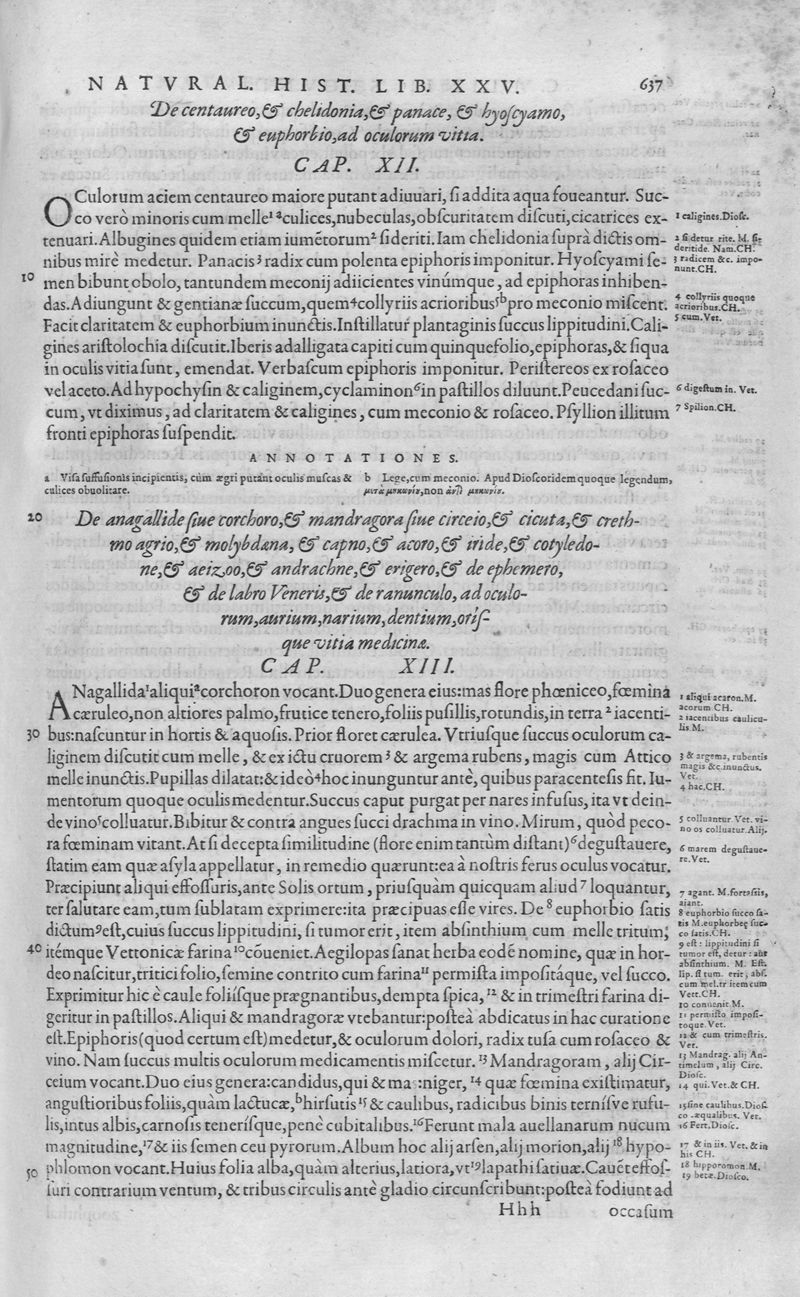 NATVRAL. HIST. LIB. XXV. 637
De centaureo,& chelidonia,& panace, & hyoſcyamo,
& euphorbio,ad oculorum vitia.
CAP. XII.
OCulorum aciem centaureo maiore putant adiuuari, ſi addita aqua foueantur. Suc-
co verò minoris cum melle¹ ᵃculices,nubeculas,obſcuritatem diſcuti,cicatrices ex-
tenuari.Albugines quidem etiam iumētorum² ſideriti.Iam chelidonia ſuprà dictis om-
nibus mirè medetur. Panacis³ radix cum polenta epiphoris imponitur. Hyoſcyami ſe-
10 men bibunt obolo, tantundem meconij adiicientes vinúmque, ad epiphoras inhiben-
das.Adiungunt & gentianæ ſuccum,quem⁴collyriis acrioribus⁵ᵇpro meconio miſcent.
Facit claritatem & euphorbium inunctis.Inſtillatur plantaginis ſuccus lippitudini.Cali-
gines ariſtolochia diſcutit.Iberis adalligata capiti cum quinquefolio,epiphoras,& ſiqua
in oculis vitia ſunt, emendat. Verbaſcum epiphoris imponitur. Periſtereos ex roſaceo
vel aceto.Ad hypochyſin & caliginem,cyclaminon⁶in paſtillos diluunt.Peucedani ſuc-
cum, vt diximus, ad claritatem & caligines, cum meconio & roſaceo. Pſyllion illitum
fronti epiphoras ſuſpendit.
1 caligines.Dioſc.
2 ſi detur rite. M. ſi-
deritide. Nam.CH.
3 radicem &c. impo-
nunt.CH.
4 collyriis quoque
acrioribus.CH.
5 cum.Vet.
6 digeſtum in. Vet.
7 Spilion.CH.
ANNOTATIONES.
a Viſa ſuffuſionis incipientis, cùm ægri putant oculis muſcas &
culices obuolitare.
b Lege,cum meconio. Apud Dioſcoridem quoque legendum,
μετὰ μηκωνίȣ,non ἀντὶ μηκωνίȣ.
20 De anagallide ſiue corchoro,& mandragora ſiue circeio,& cicuta,& creth-
mo agrio,& molybdæna, & capno,& acoro,& iride,& cotyledo-
ne,& aeizoo,& andrachne,& erigero,& de ephemero,
& de labro Veneris,& de ranunculo, ad oculo-
rum,aurium,narium,dentium,oriſ-
que vitia medicinæ.
CAP. XIII.
ANagallida¹aliquiᵃcorchoron vocant.Duo genera eius:mas flore phœniceo,fœmina
cæruleo,non altiores palmo,frutice tenero,foliis puſillis,rotundis,in terra ² iacenti-
30 bus:naſcuntur in hortis & aquoſis. Prior floret cærulea. Vtriuſque ſuccus oculorum ca-
liginem diſcutit cum melle, & ex ictu cruorem ³ & argema rubens, magis cum Attico
melle inunctis.Pupillas dilatat:& ideò⁴hoc inunguntur antè, quibus paracenteſis fit. Iu-
mentorum quoque oculis medentur.Succus caput purgat per nares infuſus, ita vt dein-
de vino⁵colluatur.Bibitur & contra angues ſucci drachma in vino. Mirum, quòd peco-
ra fœminam vitant.At ſi decepta ſimilitudine (flore enim tantùm diſtant)⁶deguſtauere,
ſtatim eam quæ aſyla appellatur, in remedio quærunt:ea à noſtris ferus oculus vocatur.
Præcipiunt aliqui effoſſuris,ante Solis ortum, priuſquàm quicquam aliud ⁷ loquantur,
ter ſalutare eam,tum ſublatam exprimere:ita præcipuas eſſe vires. De ⁸ euphorbio ſatis
dictum⁹eſt,cuius ſuccus lippitudini, ſi tumor erit, item abſinthium cum melle tritum;
40 itémque Vettonicæ farina ¹⁰cōueniet.Aegilopas ſanat herba eodē nomine, quæ in hor-
deo naſcitur,tritici folio,ſemine contrito cum farina¹¹ permiſta impoſitáque, vel ſucco.
Exprimitur hic è caule foliíſque prægnantibus,dempta ſpica, ¹² & in trimeſtri farina di-
geritur in paſtillos. Aliqui & mandragoræ vtebantur:poſteà abdicatus in hac curatione
eſt.Epiphoris(quod certum eſt)medetur,& oculorum dolori, radix tuſa cum roſaceo &
vino. Nam ſuccus multis oculorum medicamentis miſcetur. ¹³ Mandragoram, alij Cir-
ceium vocant.Duo eius genera:candidus,qui & mas:niger, ¹⁴ quæ fœmina exiſtimatur,
anguſtioribus foliis,quàm lactucæ,ᵇhirſutis¹⁵& caulibus, radicibus binis terniſve rufu-
lis,intus albis,carnoſis teneriſque,penè cubitalibus.¹⁶Ferunt mala auellanarum nucum
magnitudine,¹⁷& iis ſemen ceu pyrorum.Album hoc alij arſen,alij morion,alij ¹⁸ hypo-
50 phlomon vocant.Huius folia alba,quàm alterius,latiora,vt¹⁹lapathi ſatiuæ.Cauēt effoſ-
ſuri contrarium ventum, & tribus circulis antè gladio circunſcribunt:poſteà fodiunt ad
1 aliqui acaron.M.
acorum CH.
2 iacentibus caulicu-
lis M.
3 & argema, rubentis
magis &c.inunctus.
Vet.
4 hac.CH.
5 colluantur Vet. vi-
no os colluatur.Alij.
6 marem deguſtaue-
re.Vet.
7 agant. M.fortaſſis,
aiant.
8 euphorbio ſucco ſa-
tis M.euphorbeę ſuc-
co ſatis.CH.
9 eſt : lippitudini ſi
tumor eſt, detur : aut
abſinthium. M. Eſt.
lip. ſi tum. erit, abſ.
cum mel.tr item cum
Vett.CH.
10 conuenit M.
11 permiſto impoſi-
toque.Vet.
12 & cum trimeſtris.
Vet.
13 Mandrag. alij An-
timelum, alij Circ.
Dioſc.
14 qui.Vet.& CH.
15 ſine caulibus.Dioſ.
co .æqualibus. Vet.
16 Fert.Dioſc.
17 & in iis. Vet.& in
his CH.
18 hipporomon.M.
19 betæ.Dioſco.
Hhh occaſum